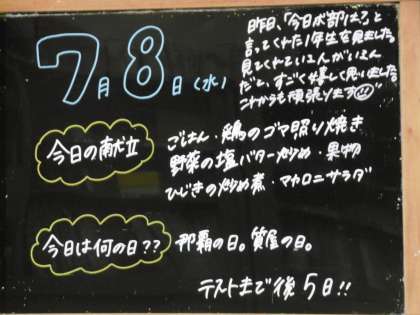 7月8日(水)
昨日、「今日ボ部は?」と
言ってくれた1年生を見ました。
見てくれている人がいるん
だと、すごく嬉しく思いました。
これからも頑張ります
今日の献立
ごはん・鶏のゴマ照り焼き
野菜の塩バター炒め・果物
ひじきの炒め煮・マカロニサラダ
今日は何の日??
那覇の日。質屋の日。
テストまで後5日!!